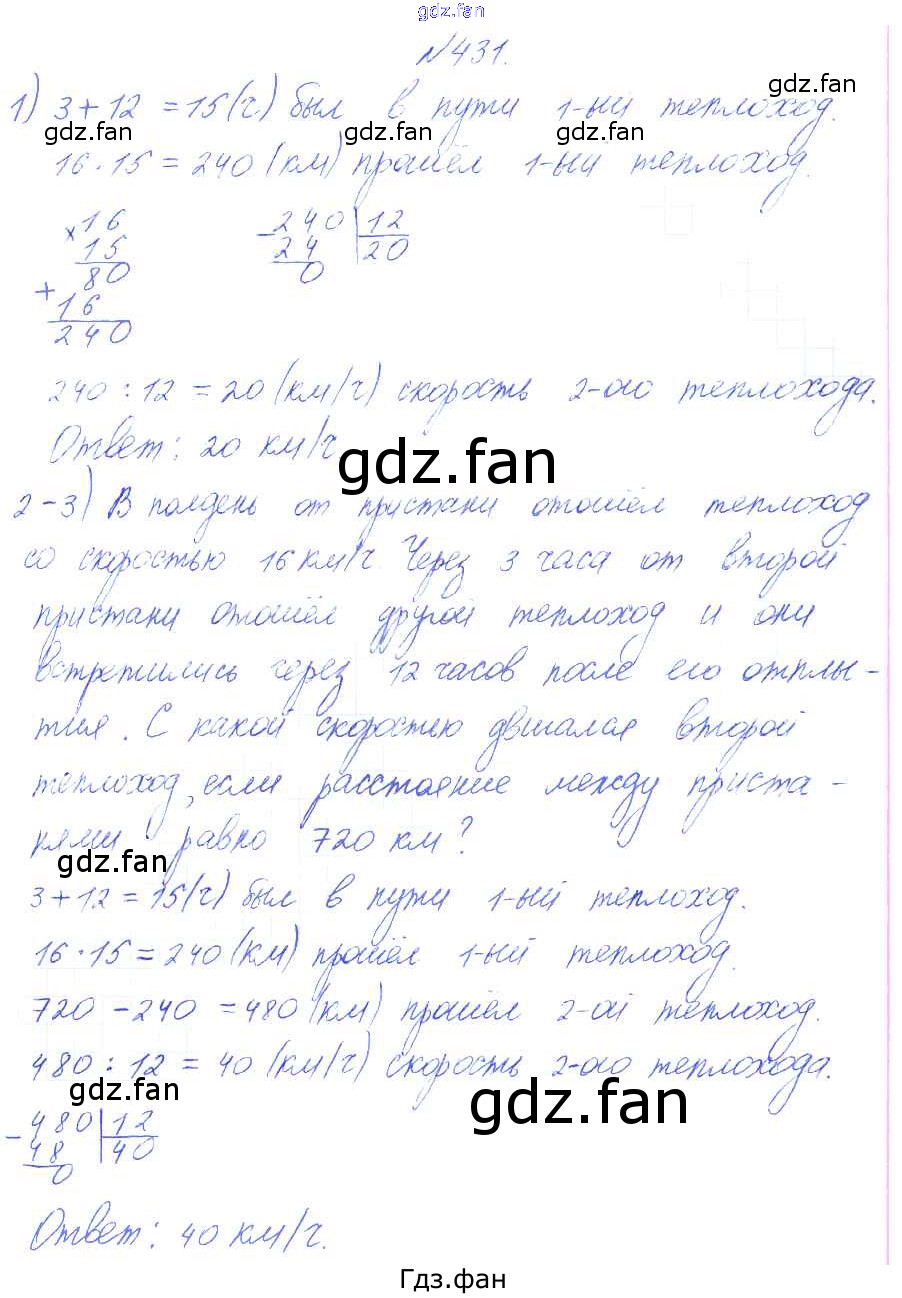 gdz.fan
№431.
1) 3+12 =15(ч) был в пути 1-ый теплоход.
gdz.fan
gdz.fan
gdz.fan
16·15 = 240 (км) прошёл 1-ый теплоход.
×16
15
80
+
16
240
-240 12
24 20
0
240 : 12 = 20 (км/ч) скорость 2-ого теплохода.
Ответ: 20 км/ч
gdz.fan
2-3) В полдень от пристани отошёл теплоход
со скоростью 16 км/ч. Через 3 часа от второй
пристани отошёл другой теплоход и они
встретились через 12 часов после его отплы-
тия. С какой скоростью двигался второй
теплоход, если расстояние между приста-
нями равно 720 км?
gdz.fan
3+12 = 15(ч) был в пути 1-ый теплоход.
16·15 = 240 (км) прошёл 1-ый теплоход.
720 - 240 = 480 (км) прошёл 2-ой теплоход.
480 : 12 = 40 (км/ч) скорость 2-ого теплохода.
gdz.fan
gdz.fan
-480 12
48 40
0
Ответ: 40 км/ч.
Гдз.фан